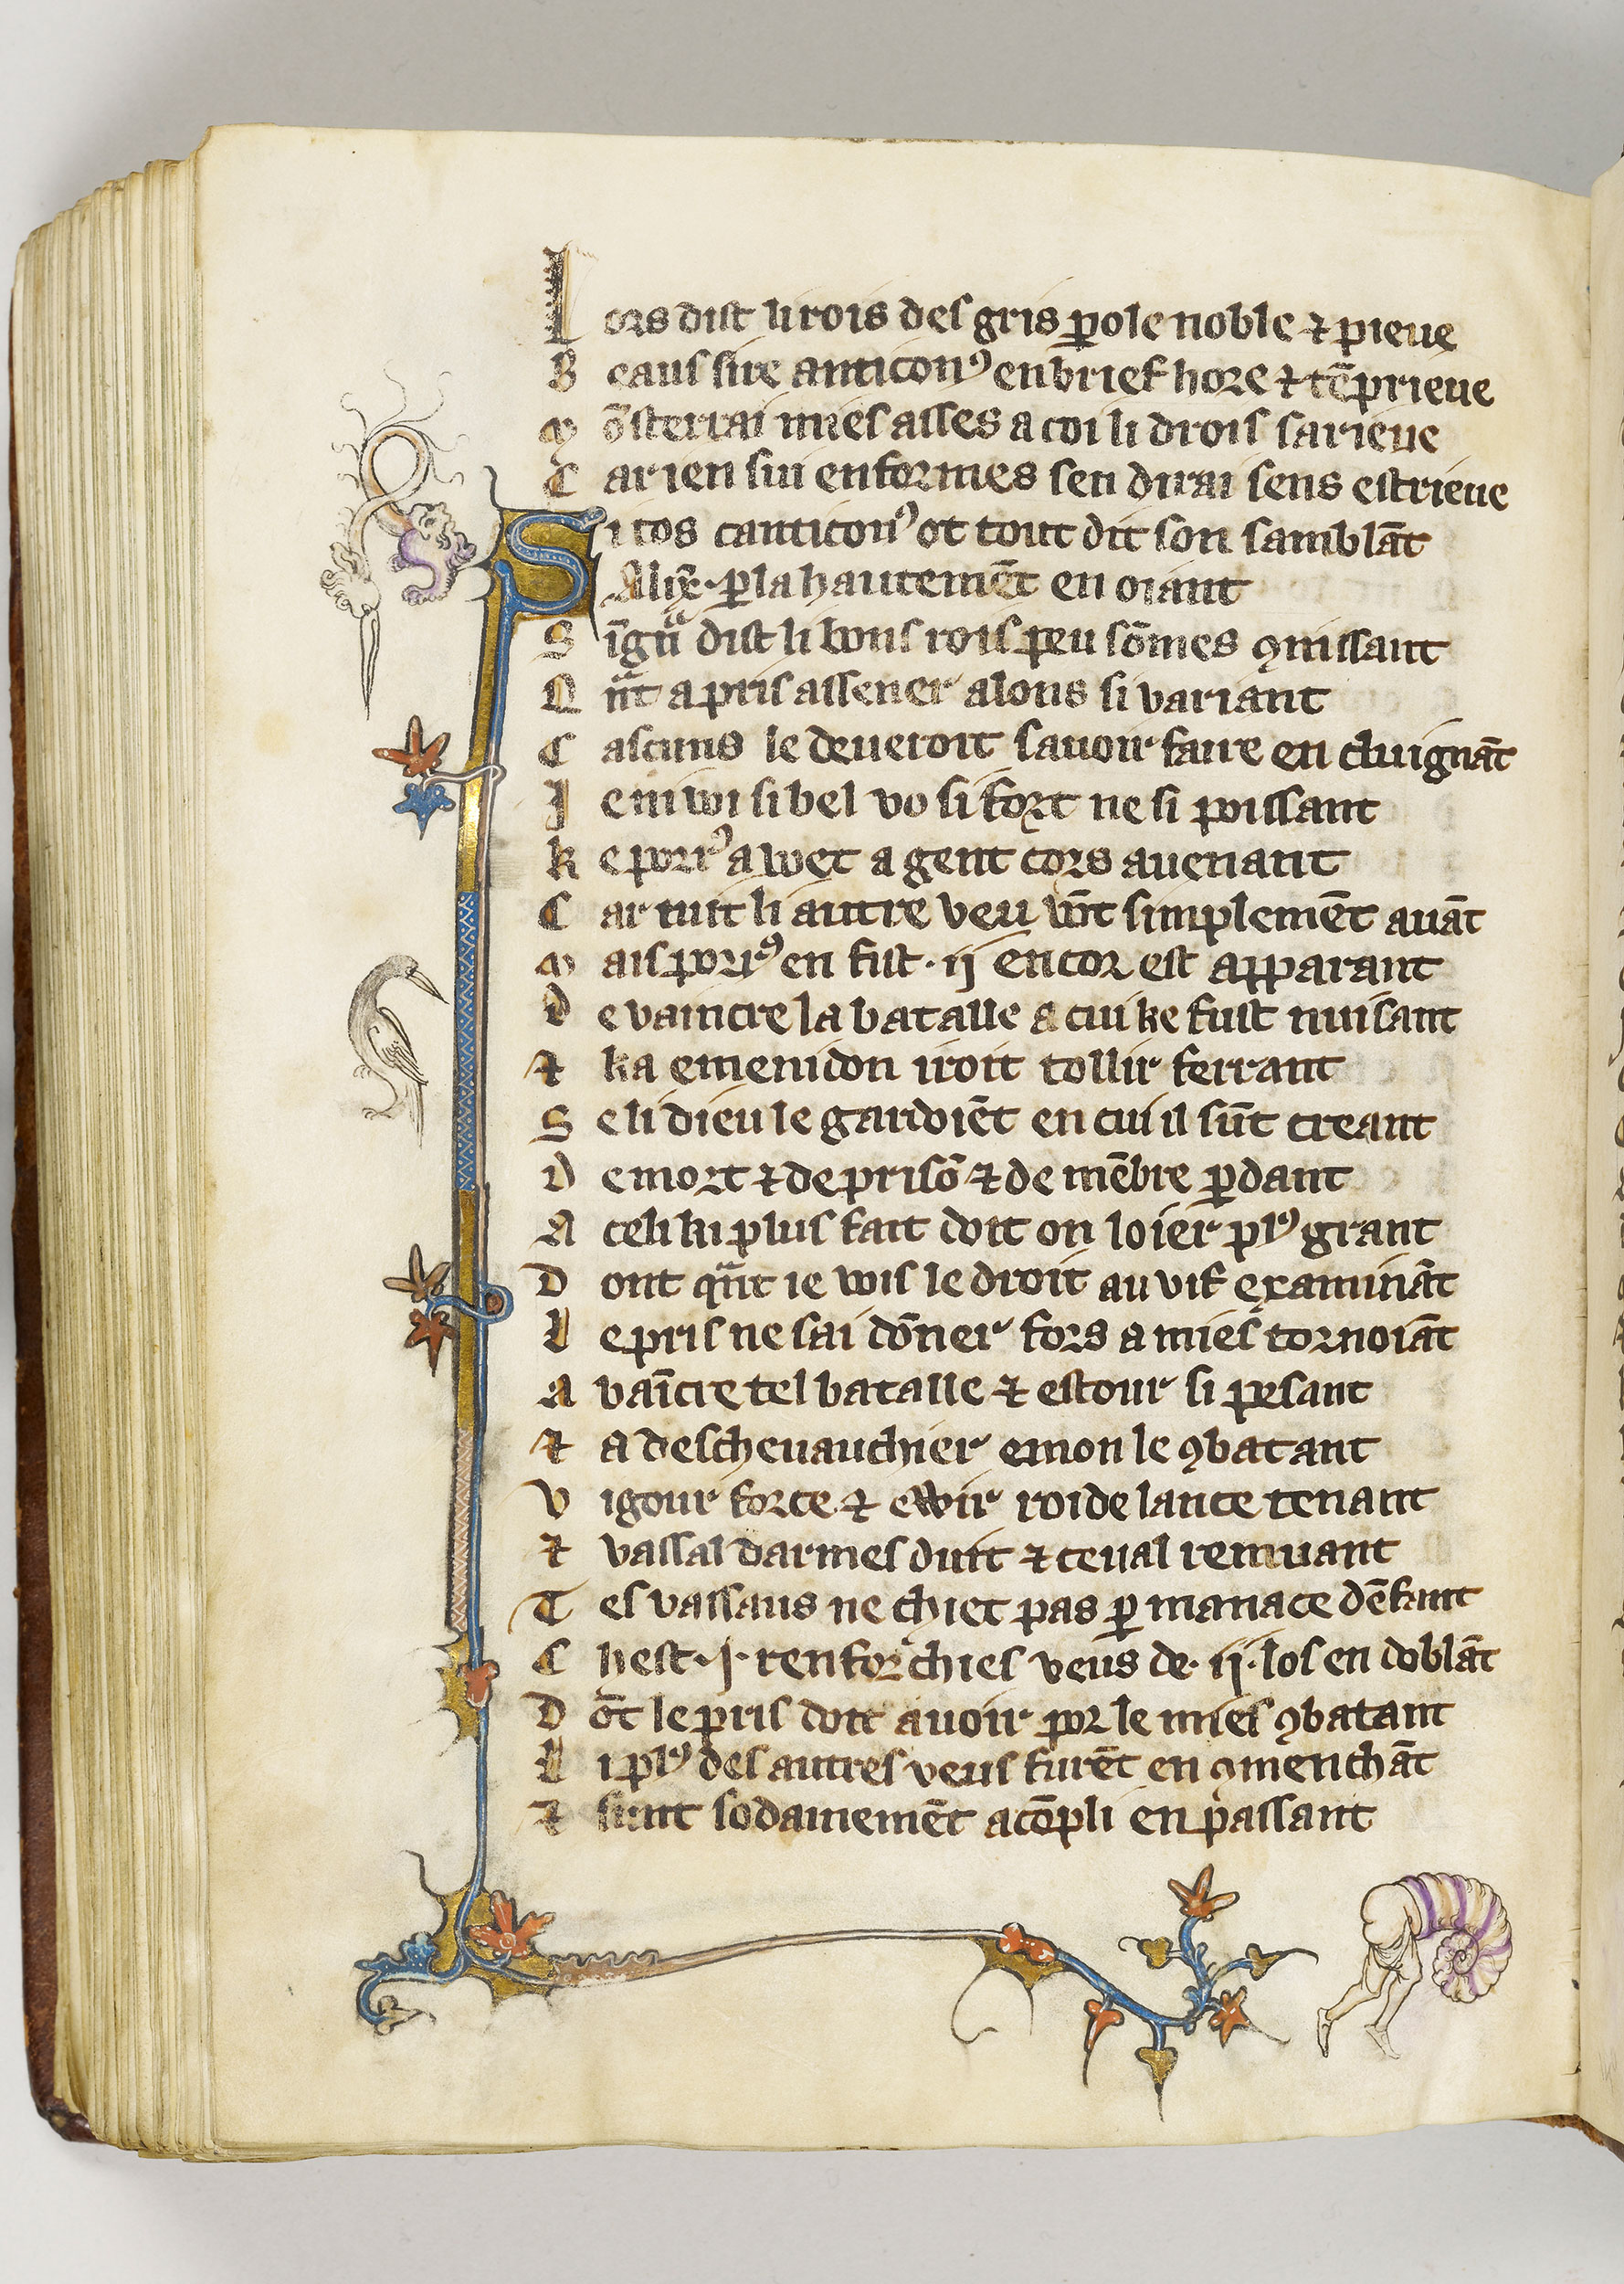 Lors dist li rois des gris ꝑole noble ⁊ pieue
Beaus sire anticonꝰ en brief hore ⁊ tēprieue
Mōsterrai mies asses a coi li drois sarieue
Car ien sui enformes sen dirai sens estrieue
Si tos canticonꝰ ot tout dit son samblāt
Alix̄. ꝑla hautemēt en oiant
Sīgnͣ dist li bons rois peu sōmes ꝯnissant
Qnͣt a pris assener alons si variant
Cascuns le deueroit sauoir faire en cluignāt
Je ni voi si bel vo si fort ne si poissant
Ke porrꝰ a voet a gent cors auenant
Car tuit li autre veu vōt simplemēt auāt
Mais porrꝰ en fist .ij encor est apparant
De vaincre la bataille a cui ke fust nuisant
⁊ ka emenidon iroit tollir ferrant
Se li dieu le gardoiēt en cui il sūt creant
De mort ⁊ de prisō ⁊ de mēbre ꝑdant
A celi ki plus fait doit on loier plꝰ grant
Dont qnͣt ie vois le droit au vif examināt
Le pris ne sai dōner fors a mies tornoiāt
A vaīcre tel batalle ⁊ estour si pesant
⁊ a descheuauchier emon le ꝯbatant
Vigour force ⁊ ewir roide lance tenant
⁊ vassal darmes duit ⁊ ceual remuant
Tes vassaus ne chiet pas ꝑ manace dēfant
Chest .j. renforchies veus de .ij. los en doblāt
Dōt le pris doit auoir por le mies ꝯbatant
Li plꝰ des autres veus furēt en ꝯmenchāt
⁊ sunt sodainemēt acōpli en passant